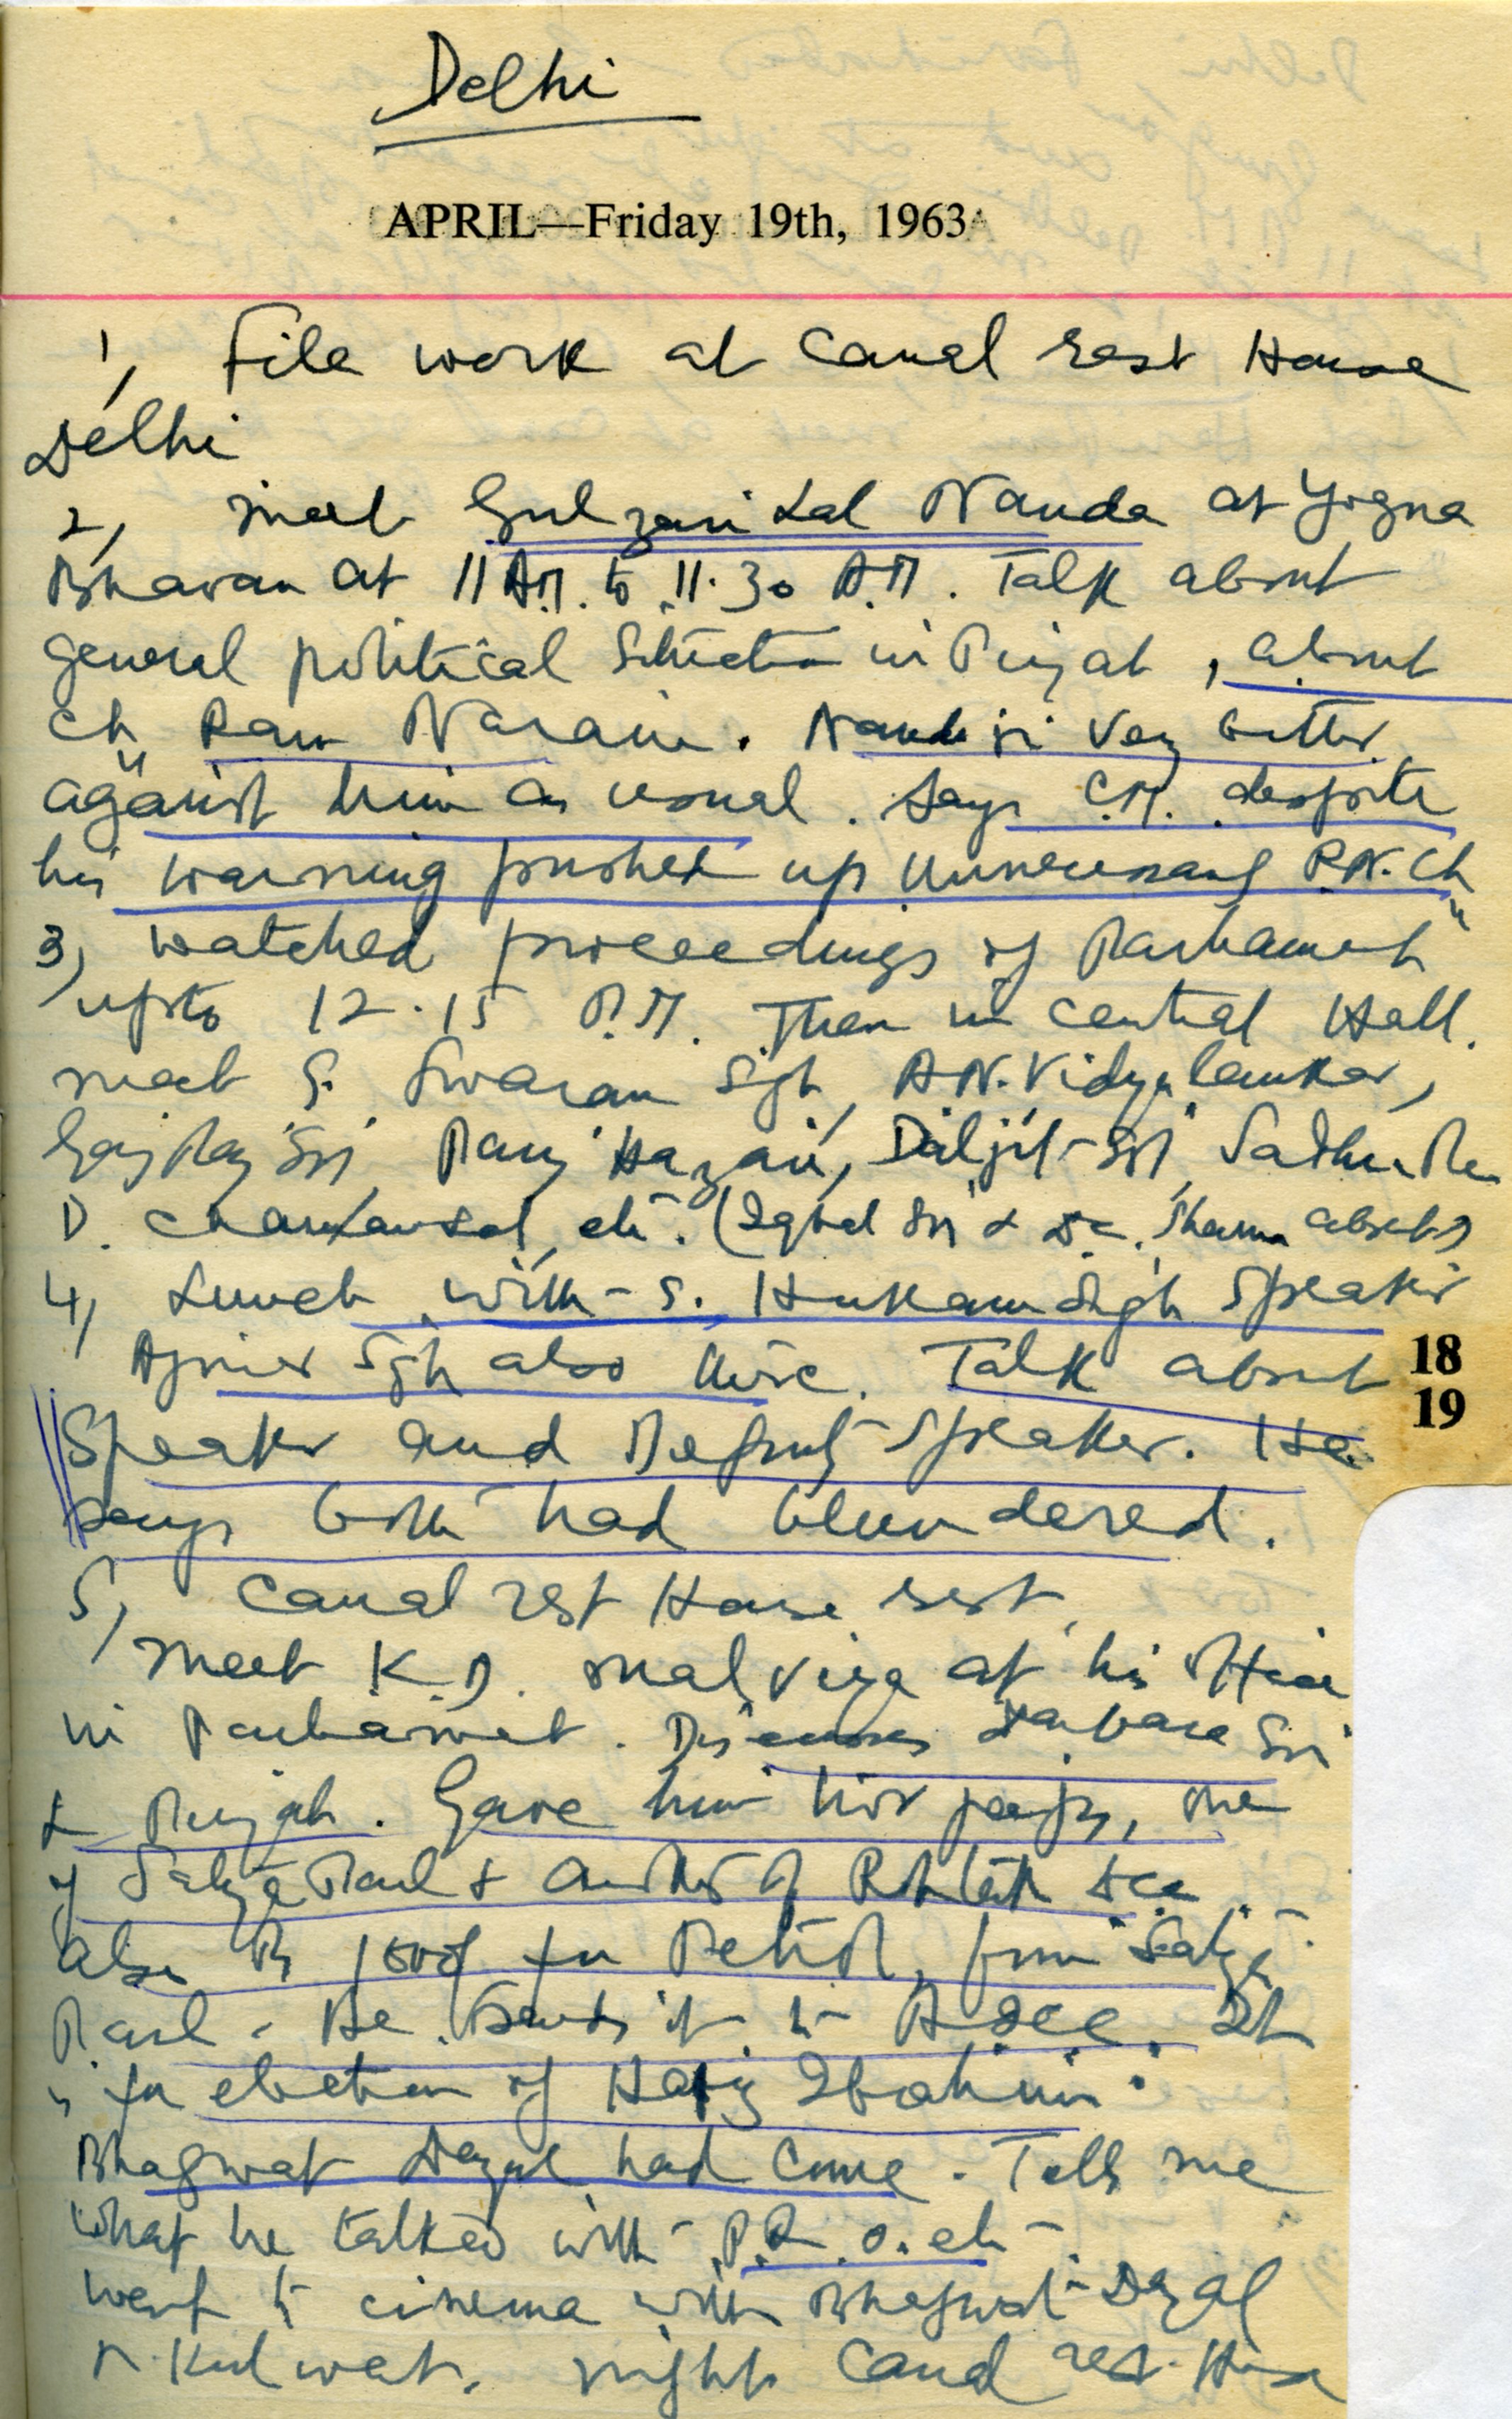 Delhi
APRIL—Friday 19th, 1963
1, File work at Canal rest House
Delhi
2, meet Gulzari Lal Nanda at Yogna
Bhavan at 11 A.M. to 11.30 A.M. Talk about
general political Situation in Punjab, about
Ch Ram Narain. Nanda ji very bitter
against him as usual. Says "C.M. despite
his warning pushed up unnecessarily R.N. Ch"
3, watched proceedings of Parliament
upto 12.15 P.M. Then in central Hall.
meet S. Swaran Sgh, A.N. Vidyalankar,
Daljit Sgh, Sadhu Ram
D. etc. (Iqbal Sgh & D.C. Sharma absent)
4, Lunch with S. Hukam Singh Speaker
Ajmer Sgh also there. Talk about
18
19
Speaker and Deputy Speaker. He
says both had blundered.
5, Canal rest House rest.
meet K.D. Malviya at his office
in Parliament. Discusses Darbara Sgh
& Punjab. Gave him two jeeps, one
of Satya Paul & another of Rohtak Dcc
also Rs for Petrol, from Satya
Paul. He sends it to It
is for election of Hafiz Ibrahim.
Bhagwat Dayal had come. Tells me
what he talked with etc
went to cinema with Bhagwat Dayal
Kulwat. night Canal rest House